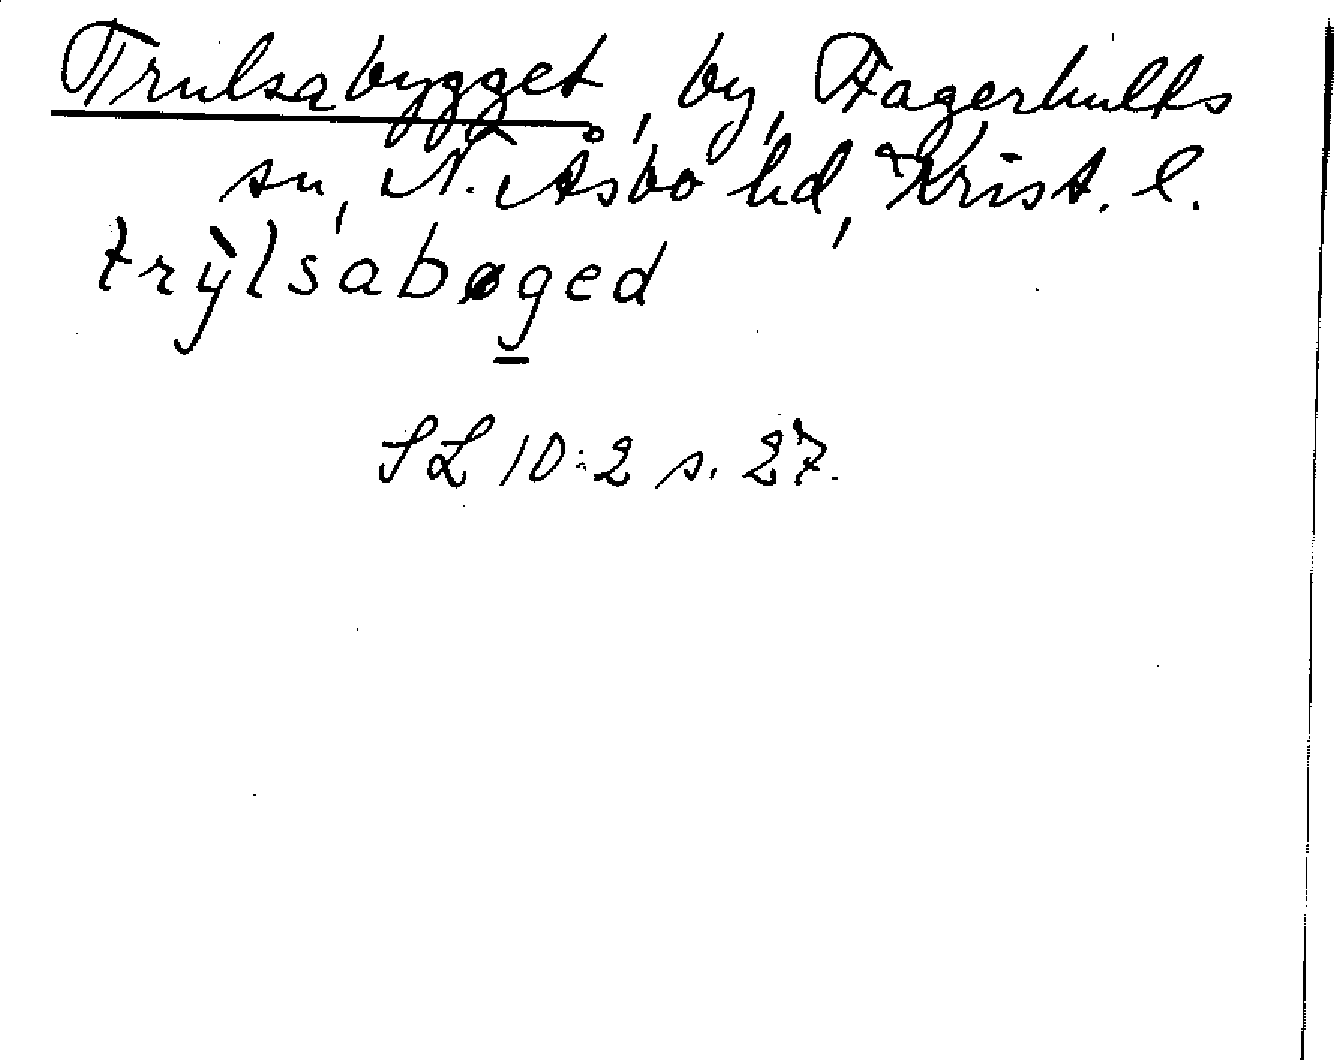 Trulsabygget, by, Fagerhults
sn, N. Åsbo hd, Krist. l.
trỳlsabøged
SL 10:2 s. 27.